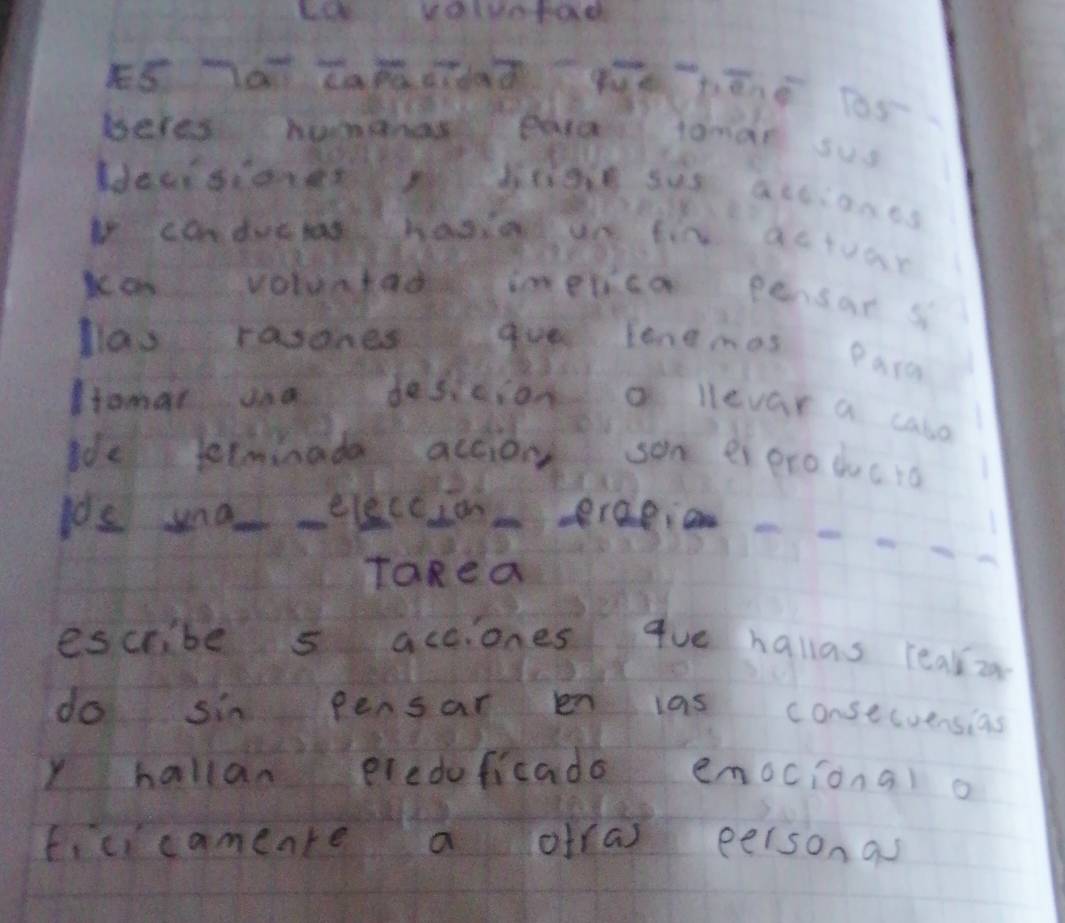 La voluntad
ES la capacidad que tiene los
seres humanos para tomar sus
decisiones y dirigir sus acciones
y conductas hasia un fin actuar
con voluntad implica pensar si
las rasones que tenemos para
tomar una desición o llevar a cabo
de terminada acción, son el producto
de una elección propia
TaRea
escribe 5 acciones que hallas realiza
do sin pensar en las consecuensias
y hallan preduficado emocional o
ficicamente a otras personas